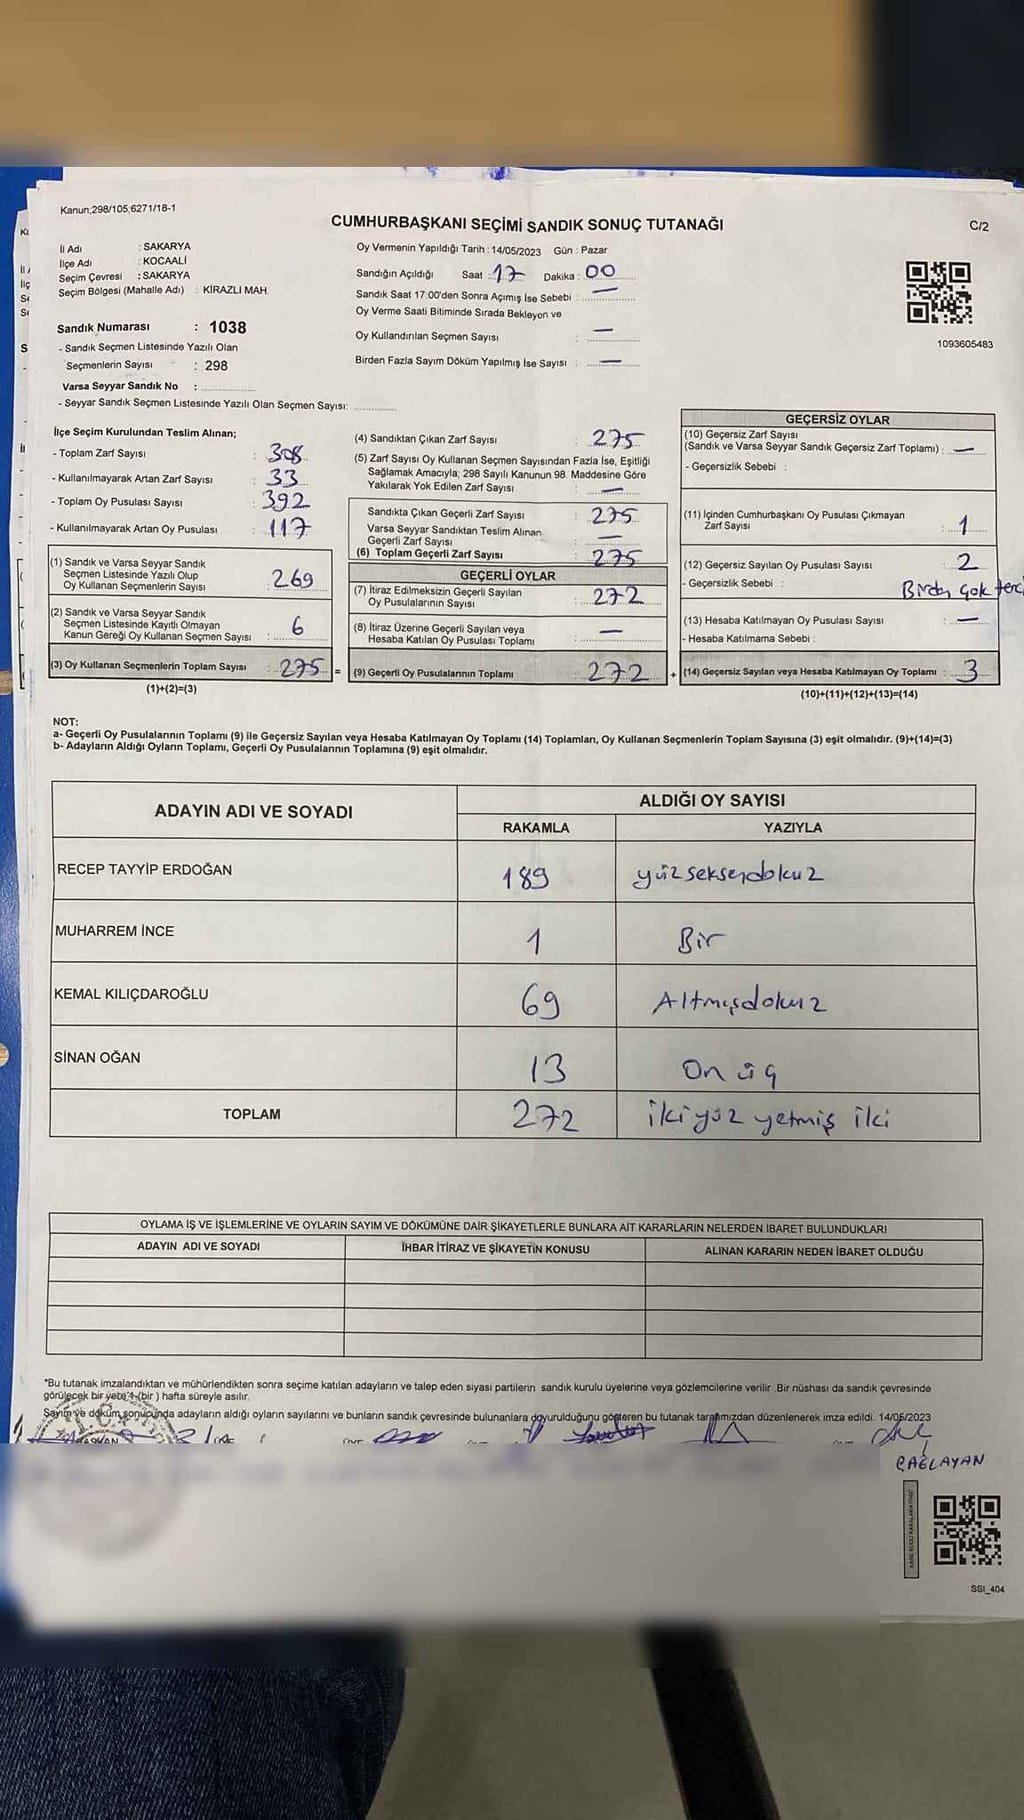 Kanun;298/105;6271/18-1
CUMHURBAŞKANI SEÇİMİ SANDIK SONUÇ TUTANAĞI
C/2
İl Adı : SAKARYA
İlçe Adı : KOCAALİ
Seçim Çevresi : SAKARYA
Seçim Bölgesi (Mahalle Adı) : KİRAZLI MAH.
Sandık Numarası : 1038
- Sandık Seçmen Listesinde Yazılı Olan
Seçmenlerin Sayısı : 298
Varsa Seyyar Sandık No :
- Seyyar Sandık Seçmen Listesinde Yazılı Olan Seçmen Sayısı:
Oy Vermenin Yapıldığı Tarih : 14/05/2023 Gün : Pazar
Sandığın Açıldığı Saat : 17 Dakika : 00
Sandık Saat 17:00'den Sonra Açımış İse Sebebi : —
Oy Verme Saati Bitiminde Sırada Bekleyon ve
Oy Kullandırılan Seçmen Sayısı : —
Birden Fazla Sayım Döküm Yapılmış İse Sayısı : —
1093605483
İlçe Seçim Kurulundan Teslim Alınan;
- Toplam Zarf Sayısı : 308
- Kullanılmayarak Artan Zarf Sayısı : 33
- Toplam Oy Pusulası Sayısı : 392
- Kullanılmayarak Artan Oy Pusulası : 117
(1) Sandık ve Varsa Seyyar Sandık
Seçmen Listesinde Yazılı Olup
Oy Kullanan Seçmenlerin Sayısı : 269
(2) Sandık ve Varsa Seyyar Sandık
Seçmen Listesinde Kayıtlı Olmayan
Kanun Gereği Oy Kullanan Seçmen Sayısı : 6
(3) Oy Kullanan Seçmenlerin Toplam Sayısı : 275 =
(1)+(2)=(3)
(4) Sandıktan Çıkan Zarf Sayısı : 275
(5) Zarf Sayısı Oy Kullanan Seçmen Sayısından Fazla İse, Eşitliği
Sağlamak Amacıyla; 298 Sayılı Kanunun 98. Maddesine Göre
Yakılarak Yok Edilen Zarf Sayısı : —
Sandıkta Çıkan Geçerli Zarf Sayısı : 275
Varsa Seyyar Sandıktan Teslim Alınan
Geçerli Zarf Sayısı : —
(6) Toplam Geçerli Zarf Sayısı : 275
GEÇERLİ OYLAR
(7) İtiraz Edilmeksizin Geçerli Sayılan
Oy Pusulalarının Sayısı : 272
(8) İtiraz Üzerine Geçerli Sayılan veya
Hesaba Katılan Oy Pusulası Toplamı : —
(9) Geçerli Oy Pusulalarının Toplamı : 272 +
GEÇERSİZ OYLAR
(10) Geçersiz Zarf Sayısı
(Sandık ve Varsa Seyyar Sandık Geçersiz Zarf Toplamı) : —
- Geçersizlik Sebebi :
(11) İçinden Cumhurbaşkanı Oy Pusulası Çıkmayan
Zarf Sayısı : 1
(12) Geçersiz Sayılan Oy Pusulası Sayısı : 2
- Geçersizlik Sebebi : Birden çok terci
(13) Hesaba Katılmayan Oy Pusulası Sayısı : —
- Hesaba Katılmama Sebebi :
(14) Geçersiz Sayılan veya Hesaba Katılmayan Oy Toplamı : 3
(10)+(11)+(12)+(13)=(14)
NOT:
a- Geçerli Oy Pusulalarının Toplamı (9) ile Geçersiz Sayılan veya Hesaba Katılmayan Oy Toplamı (14) Toplamları, Oy Kullanan Seçmenlerin Toplam Sayısına (3) eşit olmalıdır. (9)+(14)=(3)
b- Adayların Aldığı Oyların Toplamı, Geçerli Oy Pusulalarının Toplamına (9) eşit olmalıdır.
ADAYIN ADI VE SOYADI
ALDIĞI OY SAYISI
RAKAMLA YAZIYLA
RECEP TAYYİP ERDOĞAN 189 yüzseksendokuz
MUHARREM İNCE 1 Bir
KEMAL KILIÇDAROĞLU 69 Altmışdokuz
SİNAN OĞAN 13 On üç
TOPLAM 272 ikiyüz yetmiş iki
OYLAMA İŞ VE İŞLEMLERİNE VE OYLARIN SAYIM VE DÖKÜMÜNE DAİR ŞİKAYETLERLE BUNLARA AİT KARARLARIN NELERDEN İBARET BULUNDUKLARI
ADAYIN ADI VE SOYADI İHBAR İTİRAZ VE ŞİKAYETİN KONUSU ALINAN KARARIN NEDEN İBARET OLDUĞU
*Bu tutanak imzalandıktan ve mühürlendikten sonra seçime katılan adayların ve talep eden siyasi partilerin sandık kurulu üyelerine veya gözlemcilerine verilir .Bir nüshası da sandık çevresinde
görülecek bir yere 1 (bir ) hafta süreyle asılır.
Sayım ve döküm sonucunda adayların aldığı oyların sayılarını ve bunların sandık çevresinde bulunanlara duyurulduğunu gösteren bu tutanak tarafımızdan düzenlenerek imza edildi. 14/05/2023
ÇAĞLAYAN
SSI_404